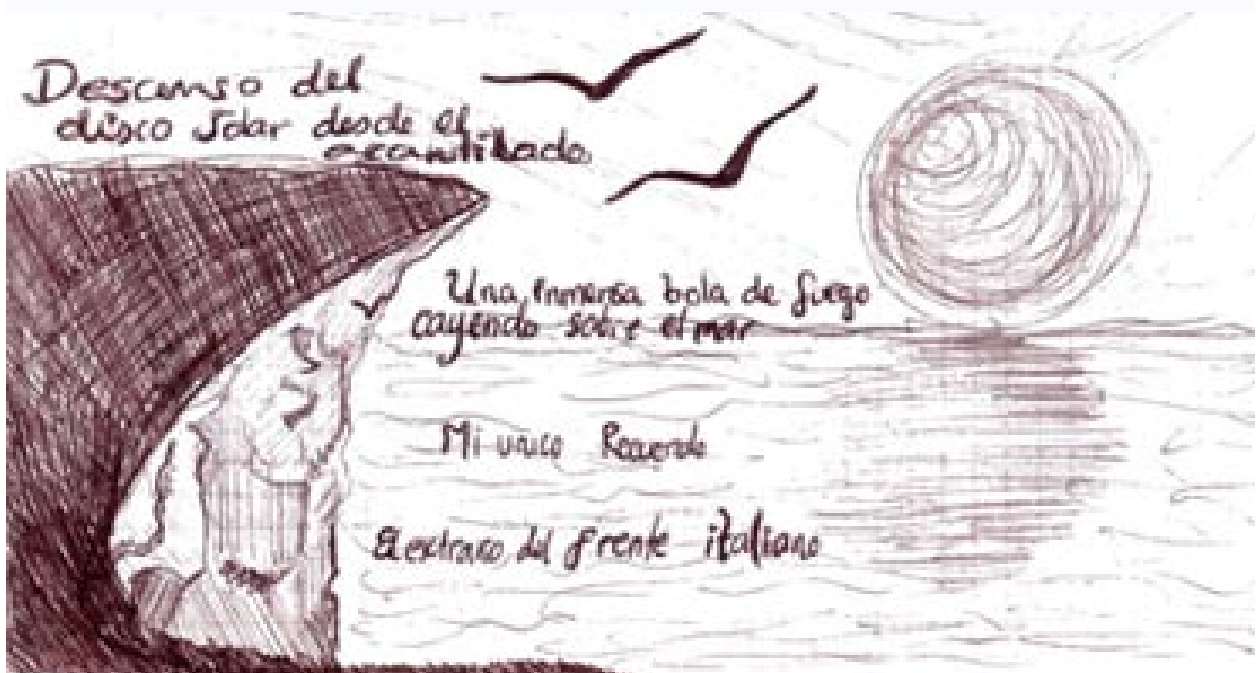 Descenso del
disco Solar desde el
acantilado.
Una inmensa bola de fuego
cayendo sobre el mar
Mi unico Recuerdo
El extraño del frente italiano